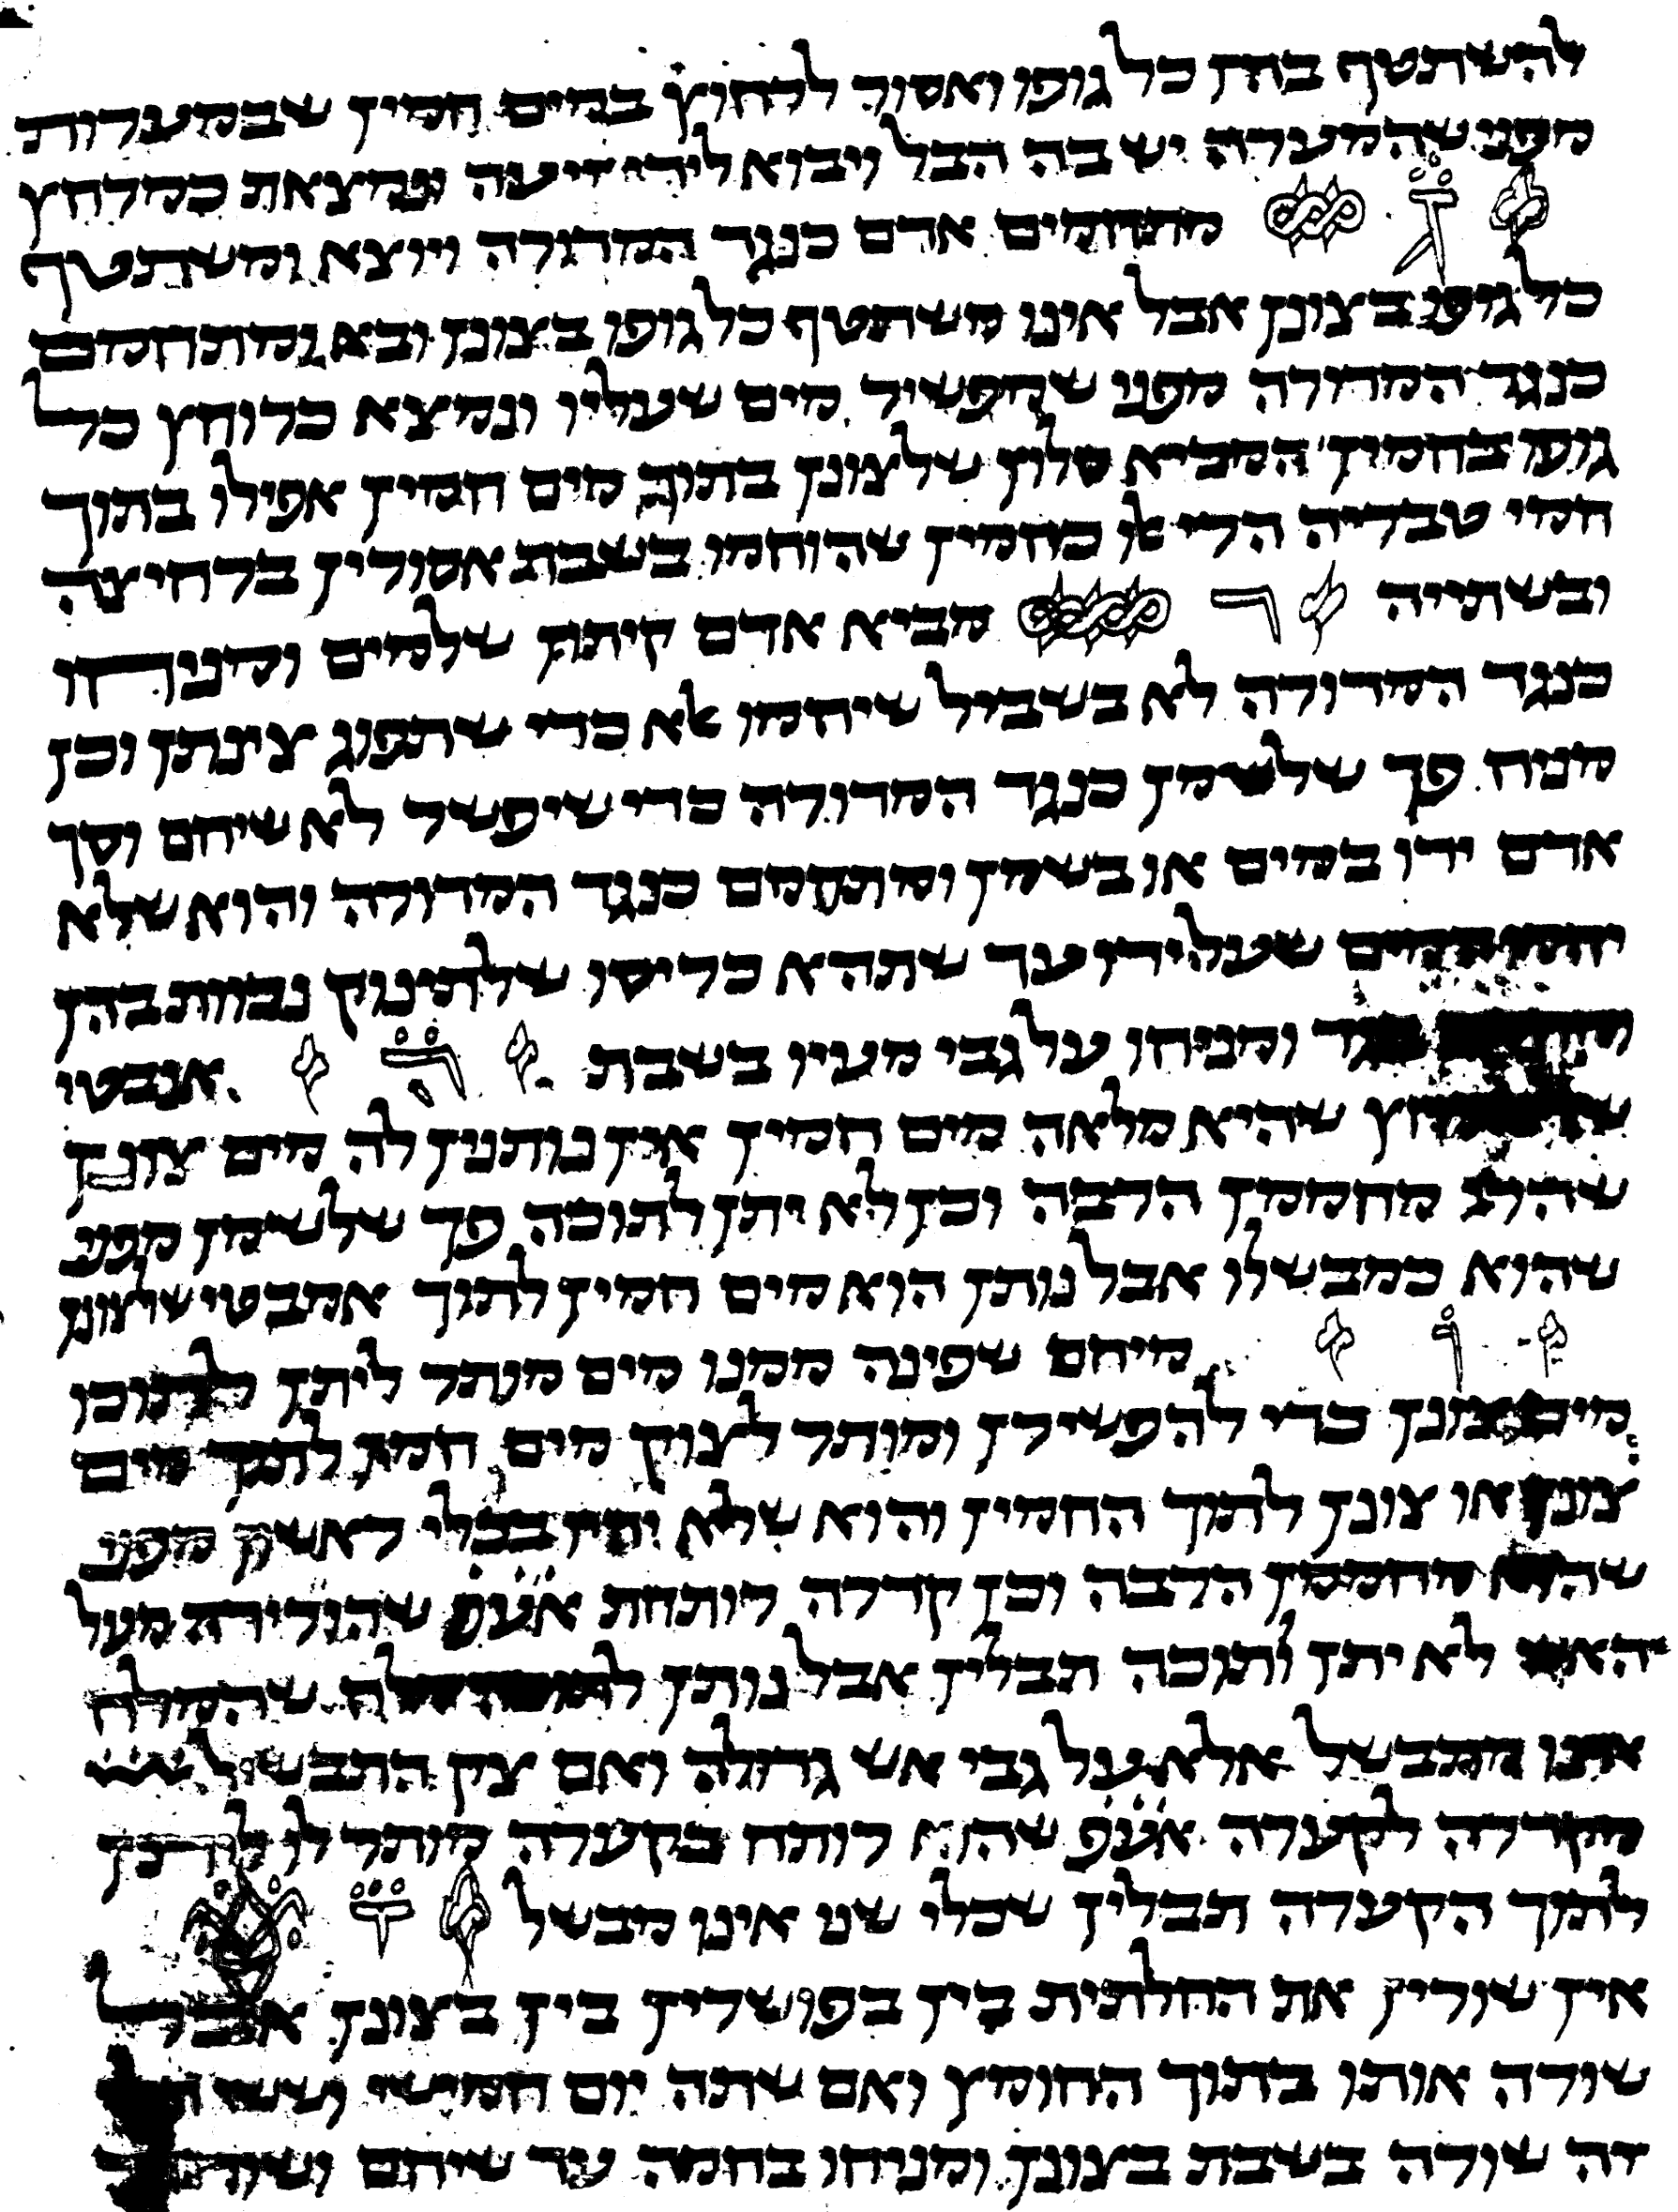 להשתטף בהן כל גופו ואסור לרחוץ במים חמין שבמערות
מפני שהמערה יש בה הבל ויבוא לידי זיעה ונמצאת כמרחץ
ד מתחמם אדם כנגד המדורה ויוצא ומשתטף
כל גופו בצונן אבל אינו משתטף כל גופו בצונן ובא ומתחמם
כנגד המדורה מפני שמפשיר מים שעליו ונמצא כרוחץ כל
גופו בחמין המביא סלון של צונן בתוך מים חמין אפילו בתוך
חמי טבריה הרי אלו כחמין שהוחמו בשבת אסורין ברחיצה
ובשתייה ה מביא אדם קיתון שלמים ומניחו
כנגד המדורה לא בשביל שיחמו אלא כדי שתפוג צינתן וכן
מניח פך שלשמן כנגד המדורה כדי שיפשר לא שיחם וסך
אדם ידו במים או בשמן ומתחמם כנגד המדורה והוא שלא
יחמו המים שעל ידו עד שתהא כריסו שלתינוק נכוות בהן
ומניחו על גבי מעיו בשבת ו אנבטי
שהיא מלאה מים חמין אין נותנין לה מים צונן
שהרי מחממן הרבה וכן לא יתן לתוכה פך שלשמן מפני
שהוא כמבשלו אבל נותן הוא מים חמין לתוך אמבטי שלצונן
ז מיחם שפינה ממנו מים מותר ליתן לתוכו
מים צונן כדי להפשירן ומותר לצוק מים חמין לתוך מים
צונן או צונן לתוך החמין והוא שלא יהיו בכלי ראשון מפני
שהוא מחממן הרבה וכן קדרה רותחת אעפ שהורידה מעל
האש לא יתן לתוכה תבלין אבל נותן לתוכה מלח שהמלח
אינו מתבשל אלא על גבי אש גדולה ואם יצק התבשיל
מקדרה לקערה אעפ שהוא רותח בקערה מותר לו ליתן
לתוך הקערה תבלין שכלי שני אינו מבשל ח
אין שורין את החלתית בין בפושרין בין בצונן אבל
שורה אותו בתוך החומץ ואם שתה יום חמישי וששי
זה שורה בשבת בצונן ומניחו בחמה עד שיחם ושותה